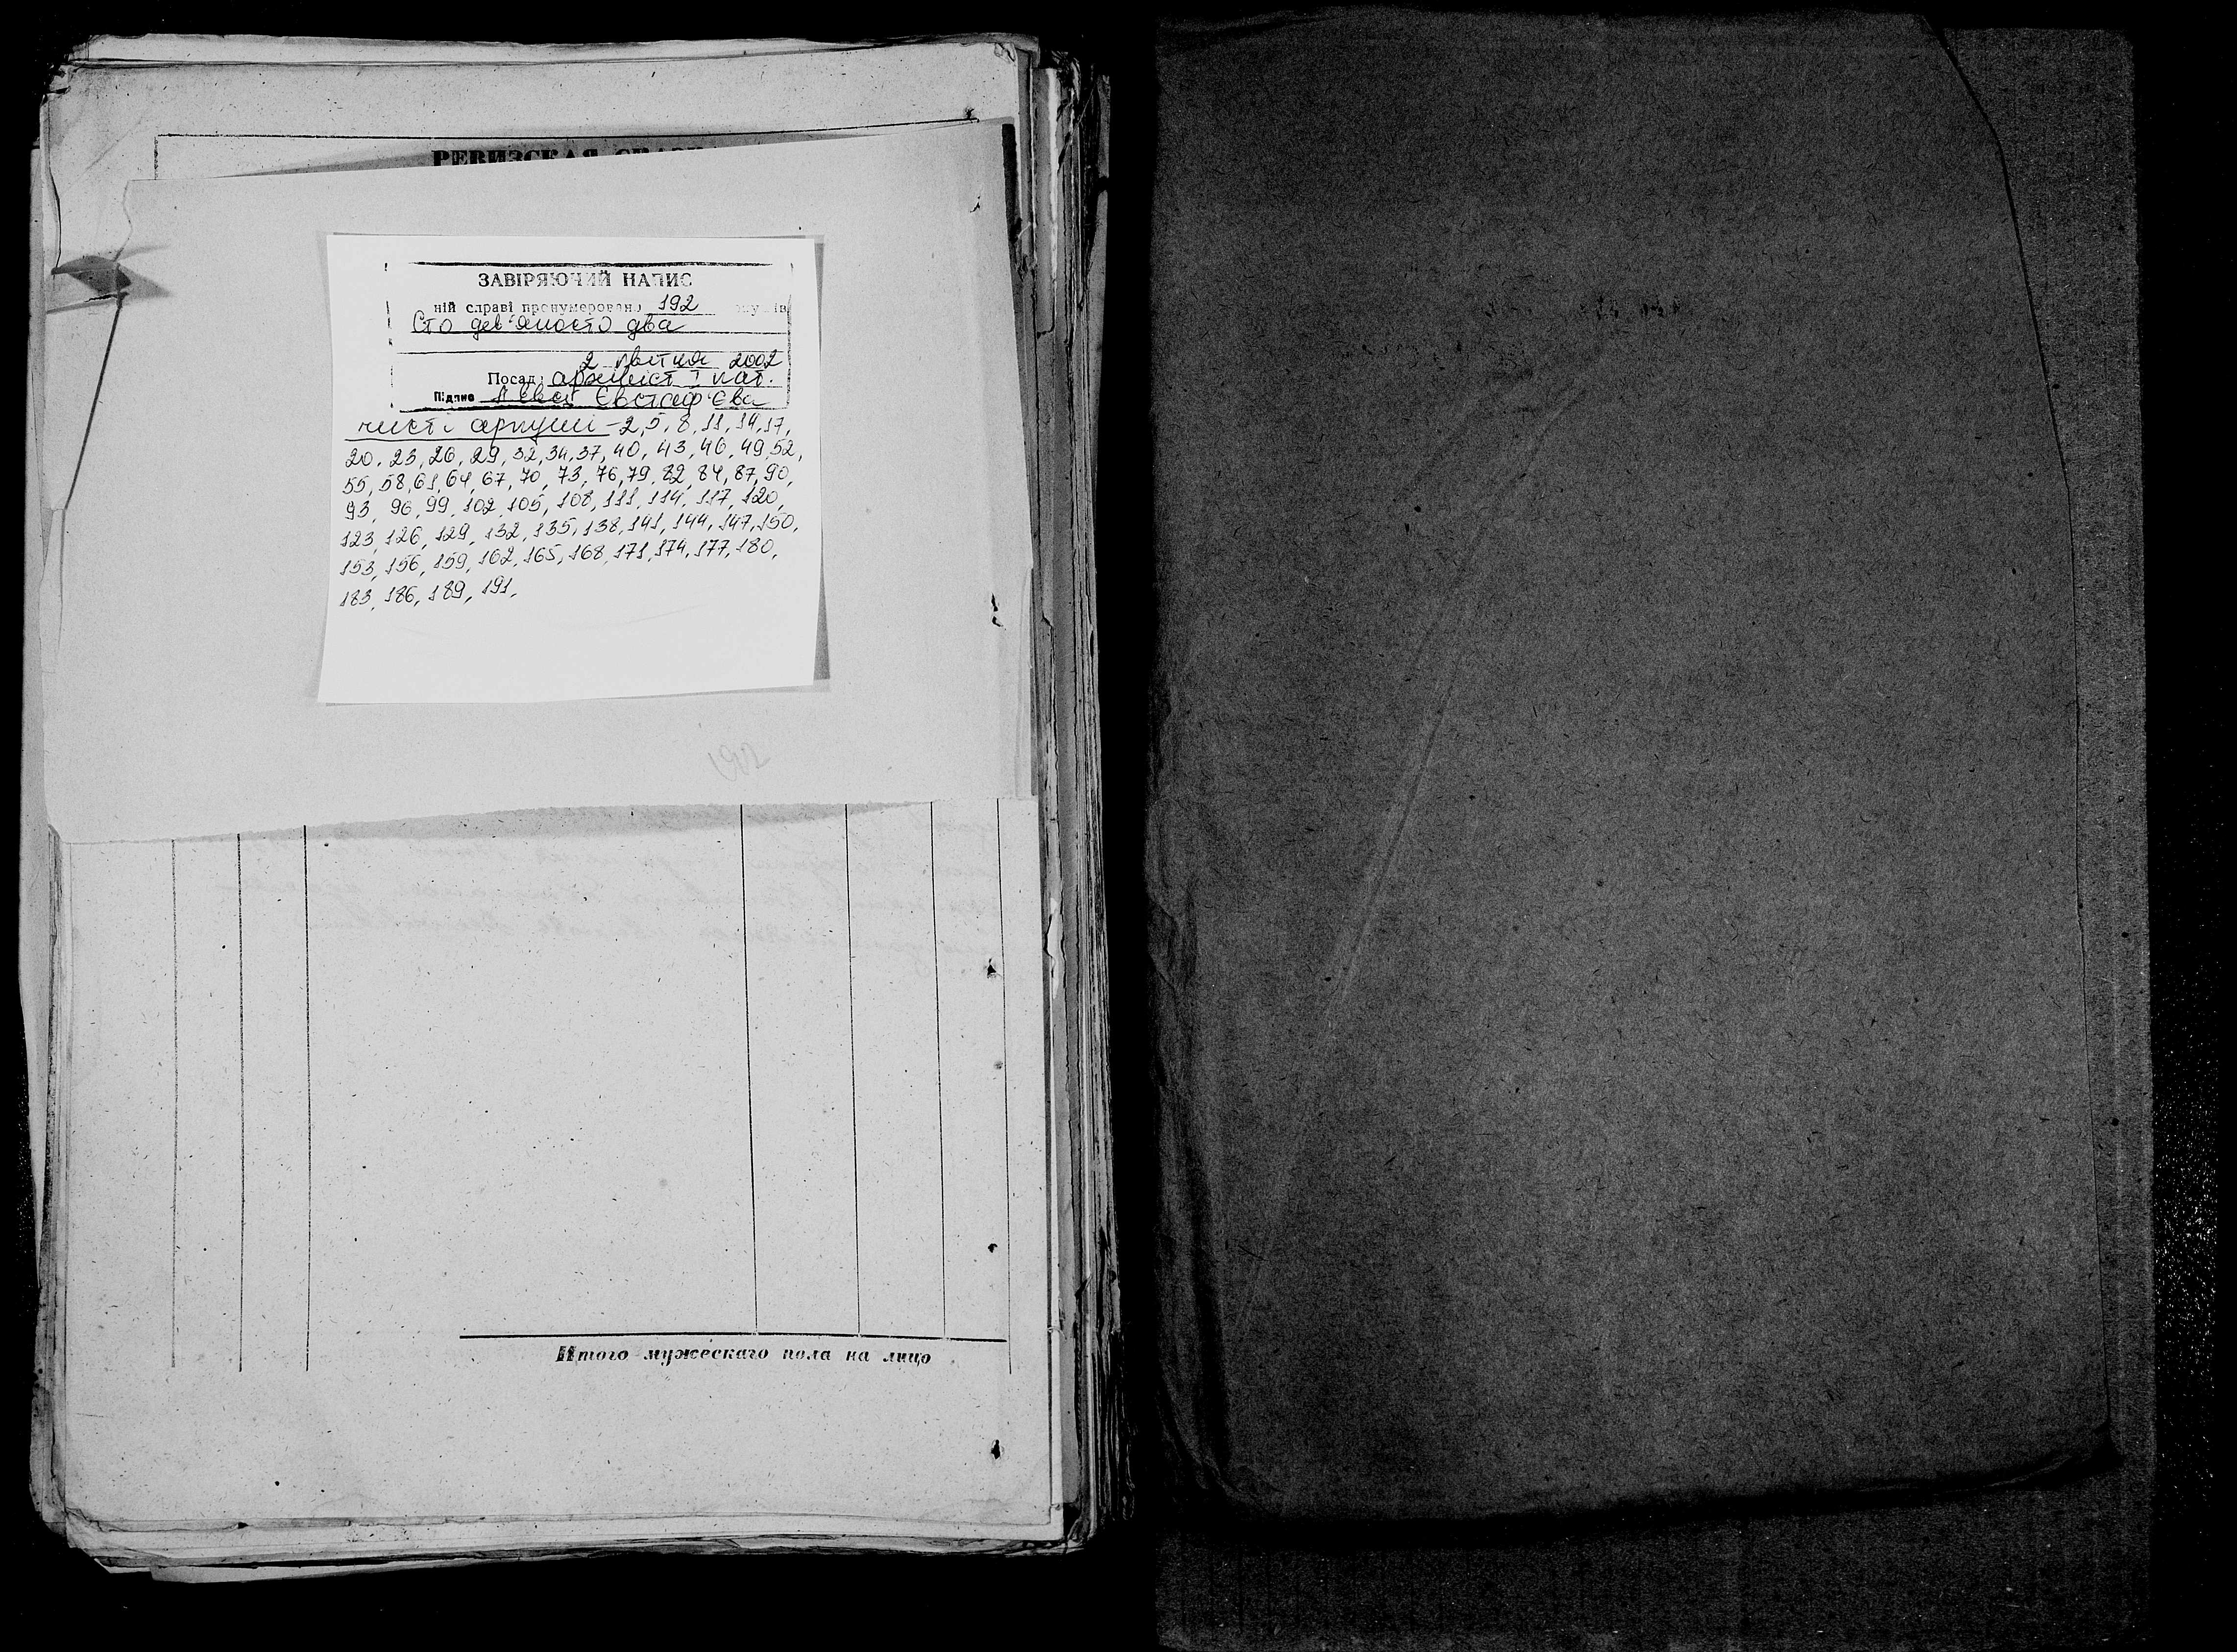 РЕВИЗСКАЯ
ЗАВІРЯЮЧИЙ НАПИС
ній справі пронумеровано 192
Сто дев'яносто два
2 квітня 2002
Посад архівіст І кат.
Підпис Євстаф'єва
чисті аркуші - 2, 5, 8, 11, 14, 17,
20, 23, 26, 29, 32, 34, 37, 40, 43, 46, 49, 52,
55, 58, 61, 64, 67, 70, 73, 76, 79, 82, 84, 87, 90,
93, 96, 99, 102, 105, 108, 111, 114, 117, 120,
123, 126, 129, 132, 135, 138, 141, 144, 147, 150,
153, 156, 159, 162, 165, 168, 171, 174, 177, 180,
183, 186, 189, 191,
Итого мужескаго пола на лицо